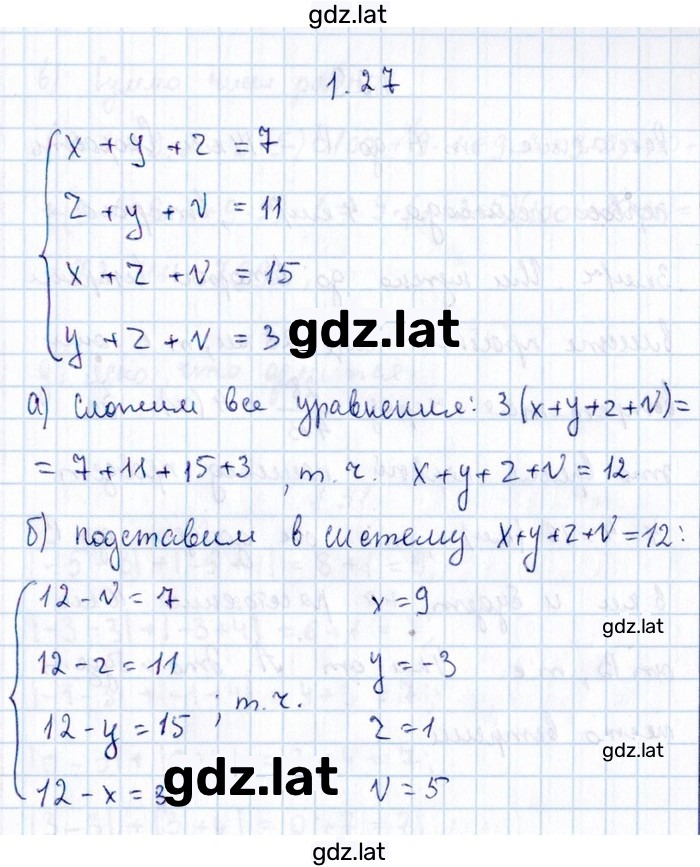 gdz.lat
1.27
x + y + z = 7
z + y + v = 11
x + z + v = 15
y + z + v = 3 gdz.lat
а) сложим все уравнения: 3(x+y+z+v)=
= 7+11+15+3, т.ч. x+y+z+v=12
б) подставим в систему x+y+z+v=12:
12-v=7 x=9
gdz.lat
12-z=11 y=-3
; т.ч.
12-y=15 z=1
gdz.lat
12-x=3 gdz.lat v=5
gdz.lat